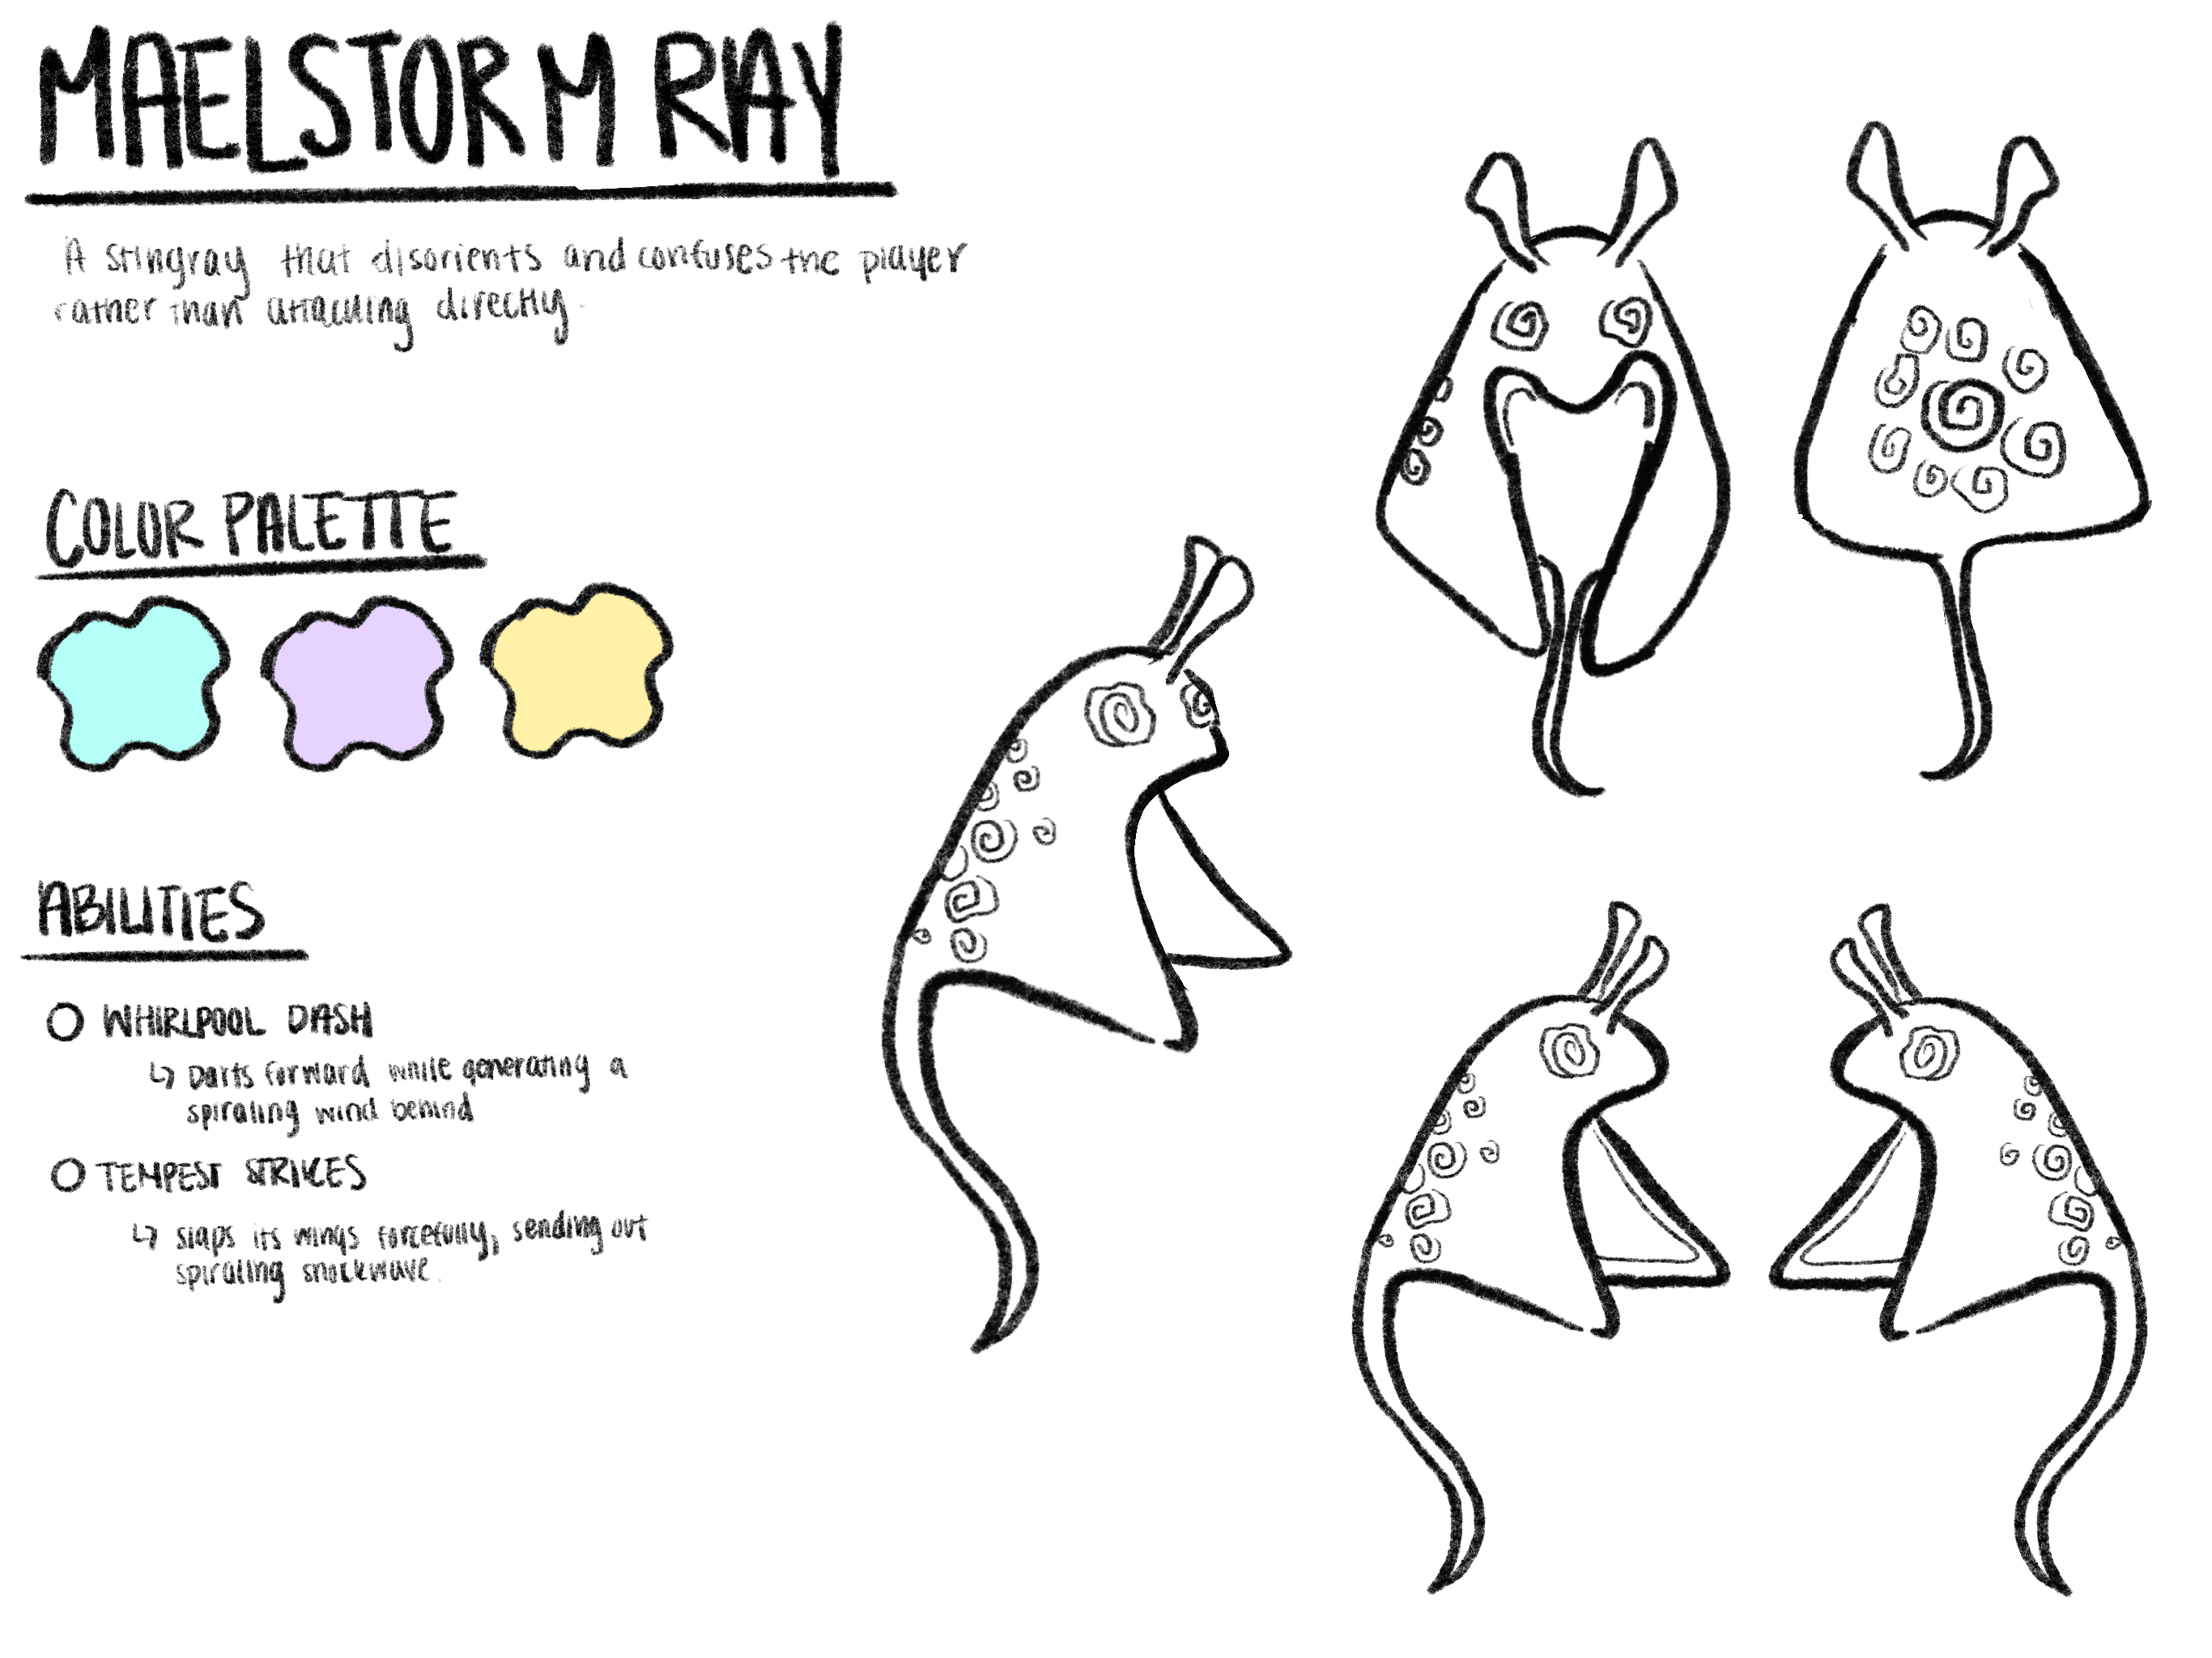 MAELSTORM RAY
A stingray that disorients and confuses the player
rather than attacking directly.
COLOR PALETTE
ABILITIES
WHIRLPOOL DASH
↳ Darts forward while generating a
spiraling wind behind
TEMPEST STRIKES
↳ slaps its wings forcefully, sending out
spiraling shockwave.